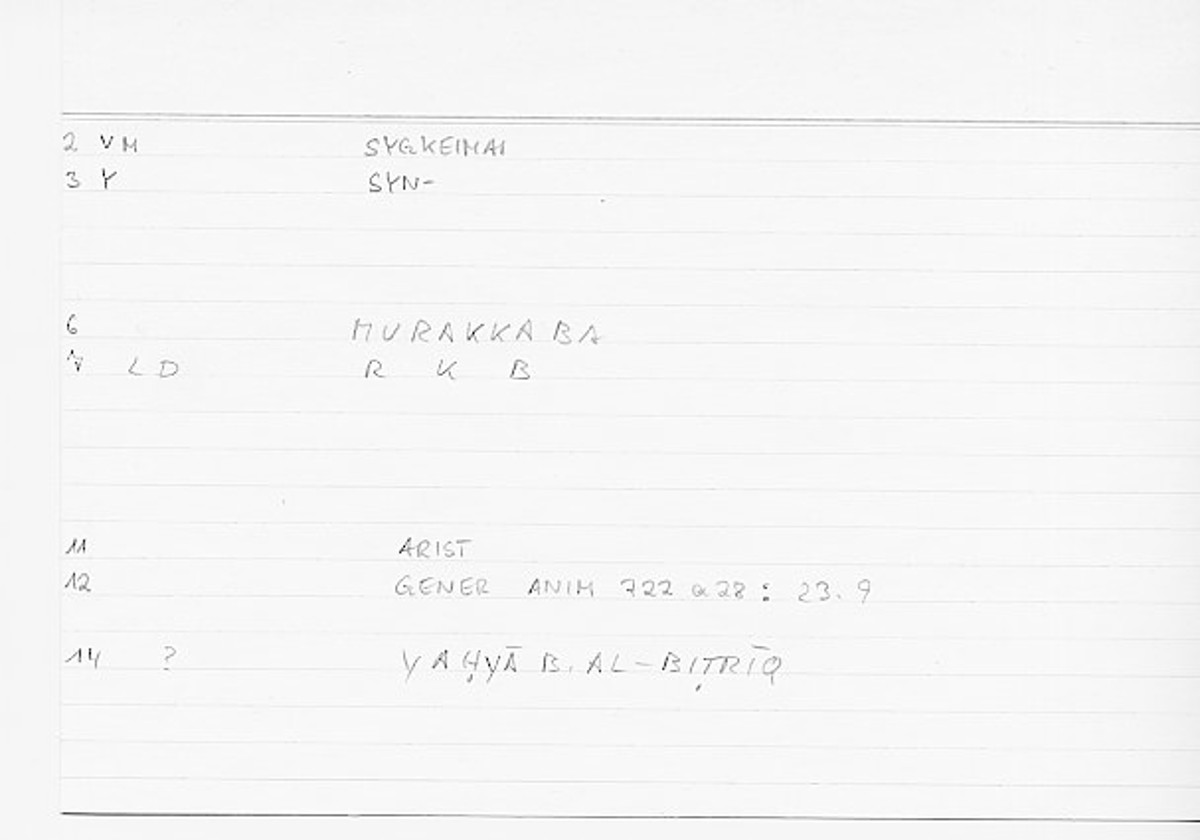 2 VM SYGKEIMAI
3 Y SYN-
6 MURAKKABA
7 LD R K B
11 ARIST
12 GENER ANIM 722 a 28 : 23. 9
14 ? YAḤYĀ B. AL-BIṬRĪQ